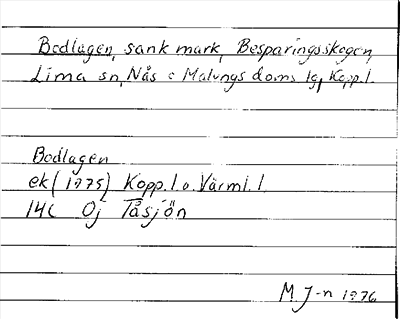 Bodlagen, sank mark, Besparingsskogen,
Lima sn, Nås o Malungs doms lg, Kopp. l.
Bodlagen
ek (1975) Kopp. l. o. Värml. l.
14C Öj Tåsjön
M. J-n 1976